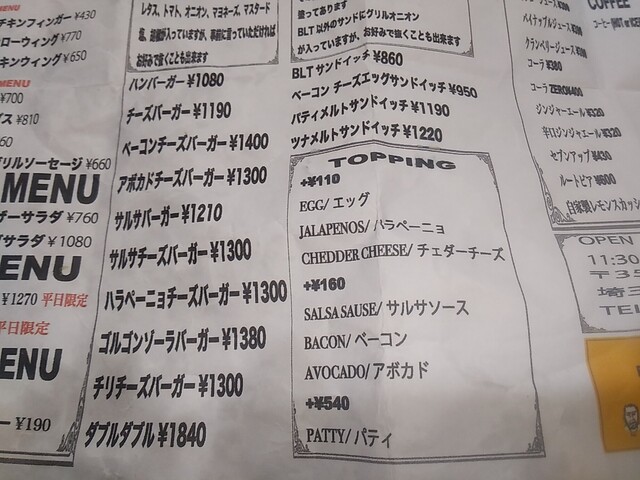 MENU
チキンフィンガー ¥430
ローウィング ¥770
キンウィング ¥650
MENU
¥700
ス ¥810
60
リルソーセージ ¥660
MENU
ザーサラダ ¥760
サラダ ¥1080
ENU
¥1270 平日限定
平日限定
ENU
ー ¥190
レタス、トマト、オニオン、マヨネーズ、マスタード
が入っていますが、事前に言っていただければ
お好みで抜くことも出来ます
ハンバーガー ¥1080
チーズバーガー ¥1190
ベーコンチーズバーガー ¥1400
アボカドチーズバーガー ¥1300
サルサバーガー ¥1210
サルサチーズバーガー ¥1300
ハラペーニョチーズバーガー ¥1300
ゴルゴンゾーラバーガー ¥1380
チリチーズバーガー ¥1300
ダブルダブル ¥1840
塗ってあります
BLT 以外のサンドにグリルオニオン
が入っていますが、お好みで抜くことも出来ます
BLT サンドイッチ ¥860
ベーコン チーズエッグサンドイッチ ¥950
パティメルトサンドイッチ ¥1190
ツナメルトサンドイッチ ¥1220
TOPPING
+¥110
EGG/ エッグ
JALAPENOS/ ハラペーニョ
CHEDDER CHEESE/ チェダーチーズ
+¥160
SALSA SAUSE/ サルサソース
BACON/ ベーコン
AVOCADO/ アボカド
+¥540
PATTY/ パティ
COFFEE
コーヒー (HOT or ICE
パイナップルジュース
クランベリージュース
コーラ ¥380
コーラ ZERO ¥400
ジンジャーエール ¥320
辛口ジンジャーエール ¥320
セブンアップ ¥430
ルートビア ¥600
自家製レモンスカッシ
OPEN
11:30
〒35
埼玉
TEL